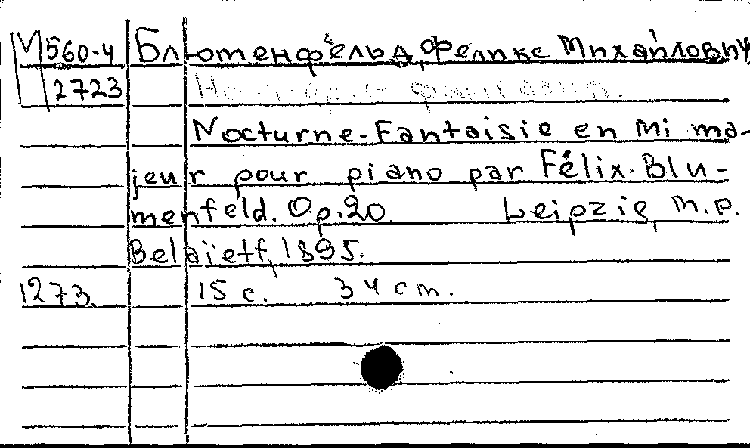 М560-4 Блюменфельд, Феликс Михайлович
2723 Ноктюрн-фантазия.
Nocturne-Fantaisie en Mi ma-
jeur pour piano par Félix Blu-
menfeld. Op.20. Leipzig, M.P.
Belaïeff, 1895.
1273. 15 с. 34 cm.